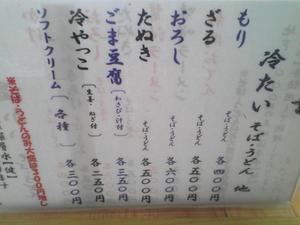 冷たい そば・うどん 他
もり そば・うどん 各四〇〇円
ざる そば・うどん 各五〇〇円
おろし そば・うどん 各六〇〇円
たぬき そば・うどん 各五〇〇円
ごま豆腐〔わさび・汁付〕各三五〇円
冷やっこ〔生姜・ねぎ付〕各二五〇円
ソフトクリーム〔各種〕各三〇〇円
※そば・うどんのみ大盛は300円増し